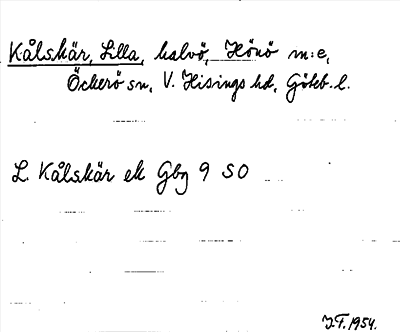 Kålskär, Lilla, halvö, Hönö m:e,
Öckerö sn, V. Hisings hd, Göteb. l.
L. Kålskär ek Gbg 9 SO
J.F. 1954.